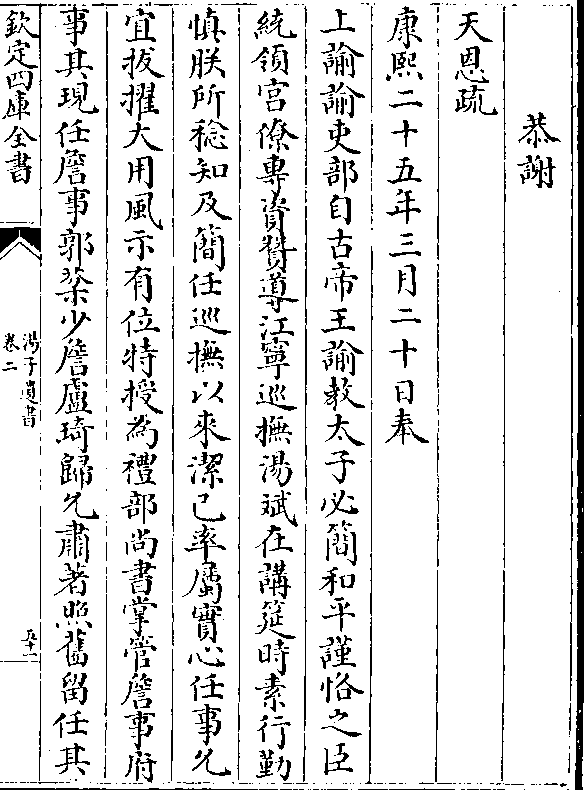 恭謝
天恩疏
康熙二十五年三月二十日奉
上諭諭吏部自古帝王諭教太子必簡和平謹恪之臣
統領宮僚專資贊導江寧巡撫湯斌在講筵時素行勤
慎朕所稔知及簡任巡撫以來潔己率屬實心任事允
宜拔擢大用風示有位特授為禮部尚書掌管詹事府
事其現任詹事郭棻少詹盧琦歸允肅著照舊留任其
欽定四庫全書
湯子遺書
卷二
五十一